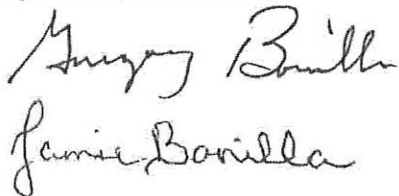 Gregory Bonilla
Jamie Bonilla